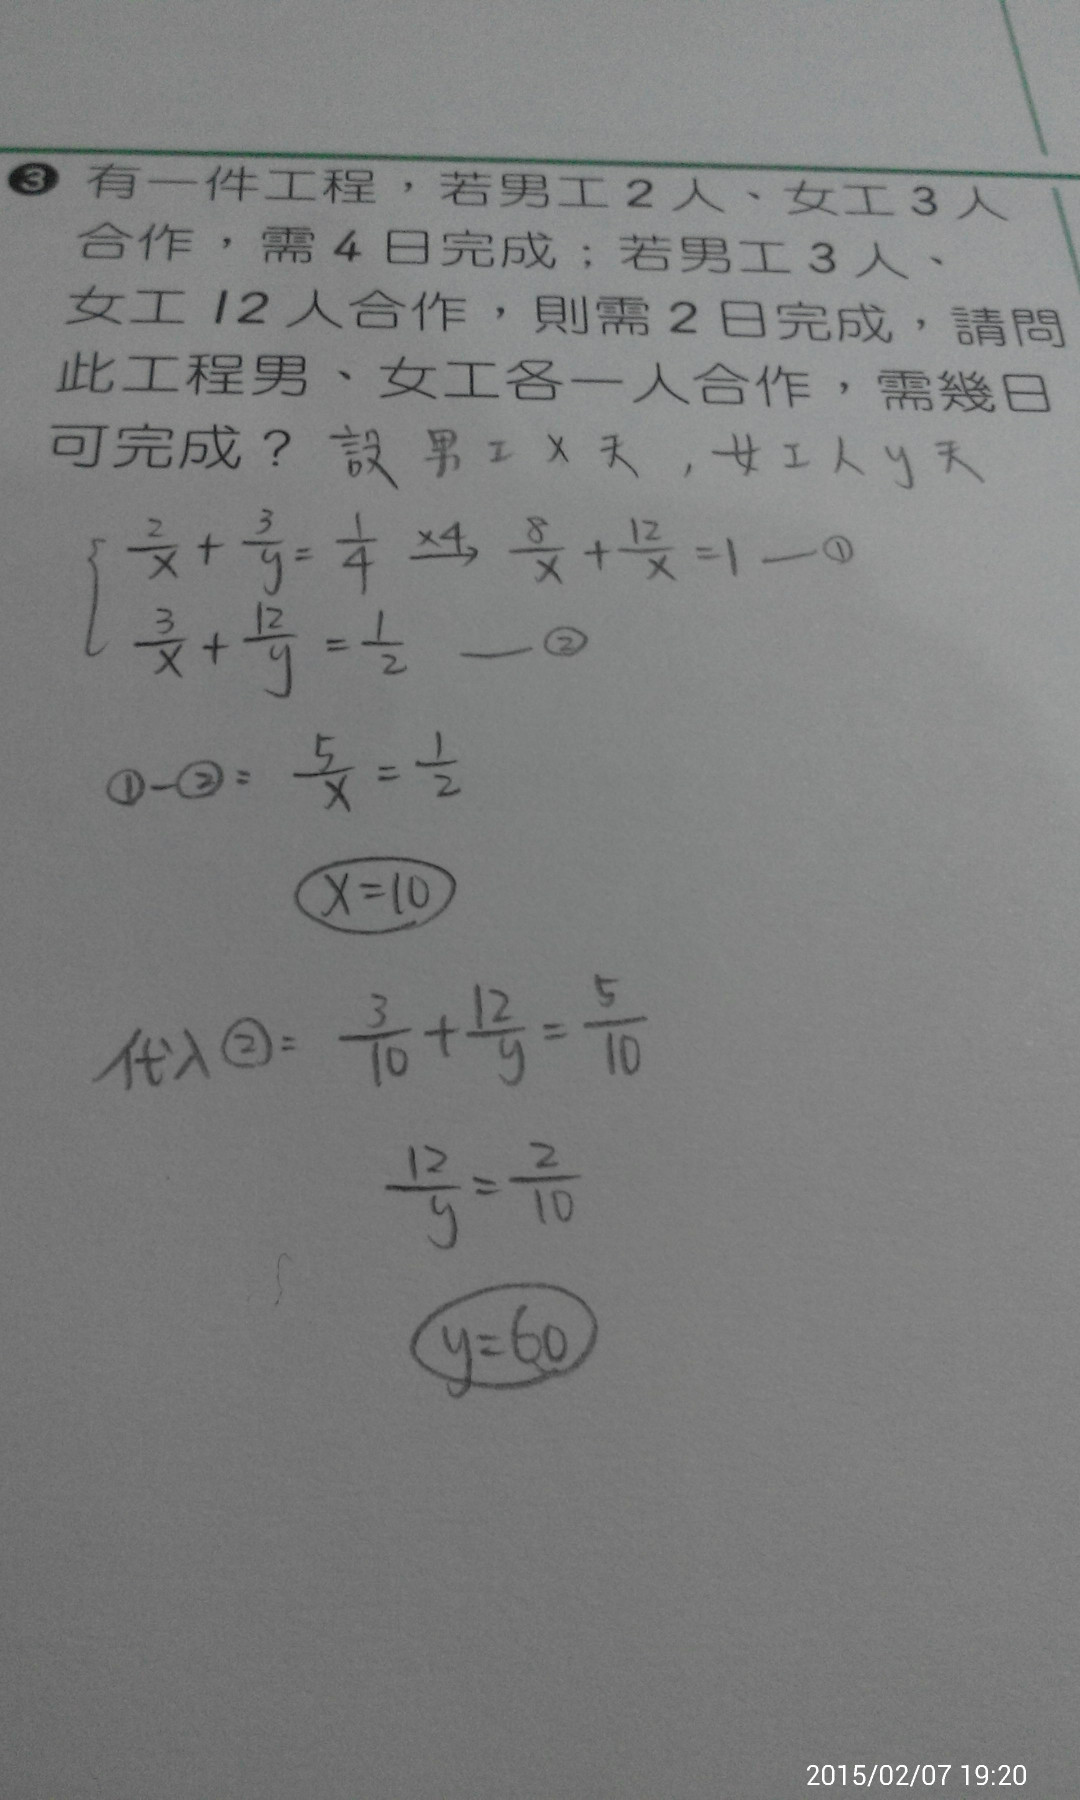 ❸ 有一件工程，若男工2人、女工3人
合作，需4日完成；若男工3人、
女工12人合作，則需2日完成，請問
此工程男、女工各一人合作，需幾日
可完成？ 設男工x天，女工人y天
2/x + 3/y = 1/4 ×4→ 8/x + 12/x = 1 —①
3/x + 12/y = 1/2 —②
①-②= 5/x = 1/2
x=10
代入②= 3/10 + 12/y = 5/10
12/y = 2/10
y=60
2015/02/07 19:20